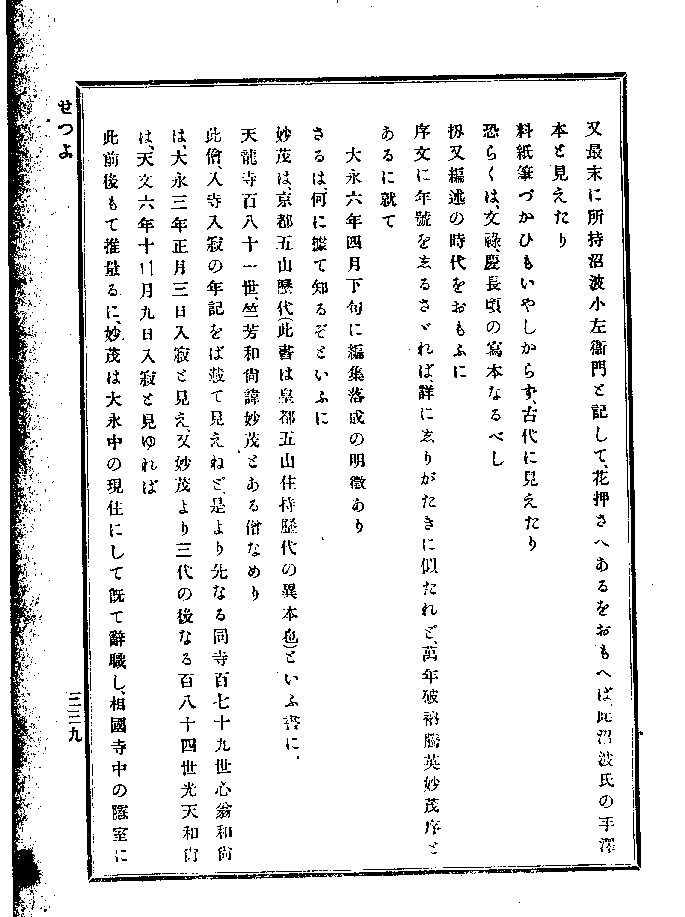 又最末に所持沼波小左衞門と記して、花押さへあるをおもへば、此沼波氏の手澤
本と見えたり
料紙筆づかひもいやしからず、古代に見えたり
恐らくは、文祿、慶長頃の寫本なるべし
扨又編述の時代をおもふに
序文に年號をゑるさゞれば、詳にゑりがたきに似たれど、萬年破衲騰英妙茂序と
あるに就て
大永六年四月下旬に編集落成の明徵あり
さるは、何に據て知るぞといふに
妙茂は、京都五山歷代(此書は皇都五山住持歷代の異本也)といふ書に、
天龍寺百八十一世、竺芳和尙諱妙茂とある僧なめり
此僧、入寺入寂の年記をば載て見えねど、是より先なる同寺百七十九世心翁和尙
は、大永三年正月三日入寂と見え、又妙茂より三代の後なる百八十四世光天和尙
は、天文六年十一月九日入寂と見ゆれば
此前後もて推量るに、妙茂は大永中の現住にして旣て辭職し、相國寺中の隱室に
せつよ
三三九